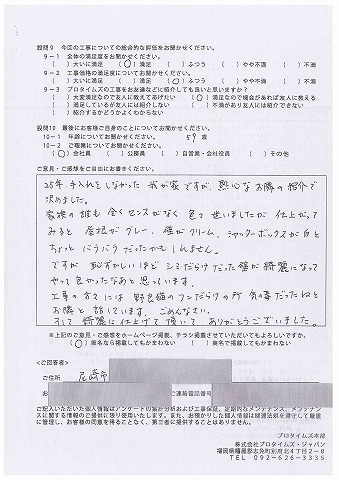 設問9 今回の工事についての総合的な評価をお聞かせください。
9-1 全体の満足度をお聞かせください。
( )大いに満足 (○)満足 ( )ふつう ( )やや不満 ( )不満
9-2 工事価格の満足度についてお聞かせください。
( )大いに満足 ( )満足 (○)ふつう ( )やや不満 ( )不満
9-3 プロタイムズの工事をお友達などに紹介しても良いと思いますか?
( )大変満足なので友人に教えてあげたい (○)満足なので機会があれば友人に教える
( )満足しているが友人には紹介しない ( )不満があり友人には紹介できない
( )紹介するかどうかよくわからない
設問10 最後にお客様ご自身のことについてお聞かせください。
10-1 年齢についてお聞かせください。 59 歳
10-2 ご職業についてお聞かせください。
(○)会社員 ( )公務員 ( )自営業・会社役員 ( )その他
ご意見・ご感想をご自由にお書きください。
25年、手入れをしなかった 我が家ですが、熱心なお隣の紹介で
決めました。
家族の誰も 全くセンスがなく 色で迷いましたが 仕上がって
みると 屋根がグレー、壁がクリーム、シャッターボックスが白と
ちょっと バラバラだったかもしれません。
ですが 恥ずかしいほど シミだらけだった壁が綺麗になって
やって良かったなあと 思っています。
工事の方々には 野良猫のフンだらけの所 気の毒だったねと
お隣と 話しています。ごめんなさい。
そして 綺麗に仕上げて頂いて ありがとうございました。
※上記のご意見・ご感想をホームページ掲載、チラシ掲載させていただいてもよろしいですか。
(○)匿名なら掲載してもかまわない ( )実名で掲載してもかまわない
<ご回答者>
ご住所 尼崎市
お
ご連絡電話番号
ご記入いただいた個人情報はアンケートの集計分析および工事保証、定期的なメンテナンス、メンテナンス
に関する情報のご提供に限り使用いたします。また、お預かりした個人情報は関連法規を遵守して厳重
に管理し、お客様の同意を得ることなく、第三者に提供することはありません。
プロタイムズ本部
株式会社プロタイムズ・ジャパン
福岡県糟屋郡志免町別府北4丁目2-8
TEL 092-626-3335